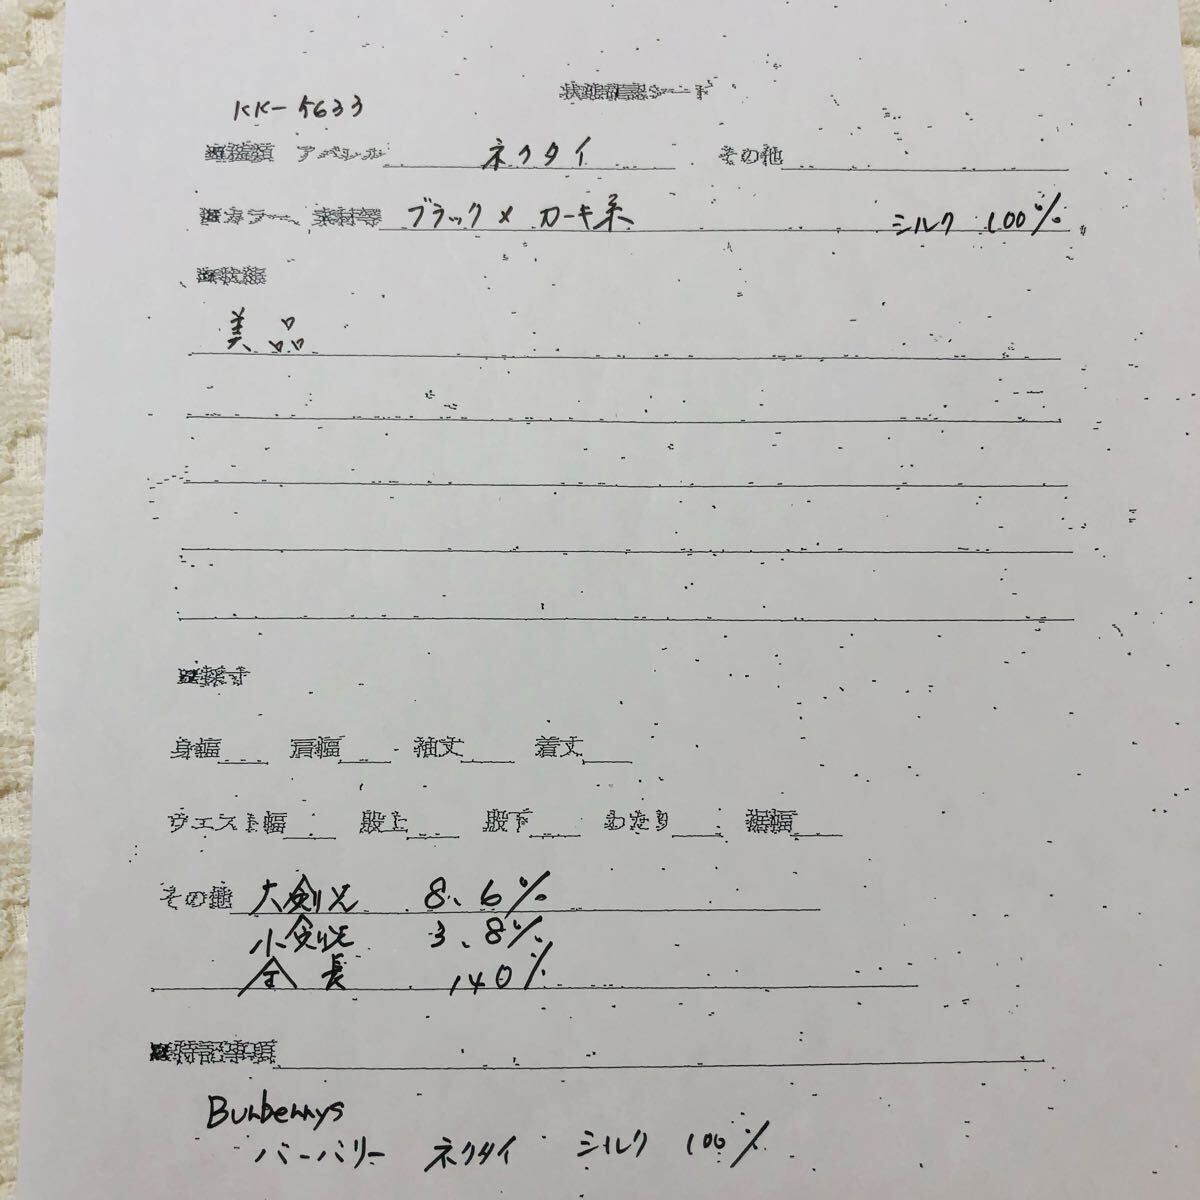 状態確認シート
KK-5633
■種類 アパレル ネクタイ その他
■カラー、素材等 ブラック×カーキ系 シルク 100%
■状態
美品
■採寸
身幅 肩幅 袖丈 着丈
ウエスト幅 股上 股下 わたり 裾幅
その他 大剣先 8.6%
小剣先 3.8%
全長 140%
■特記事項
Burberrys
バーバリー ネクタイ シルク 100%